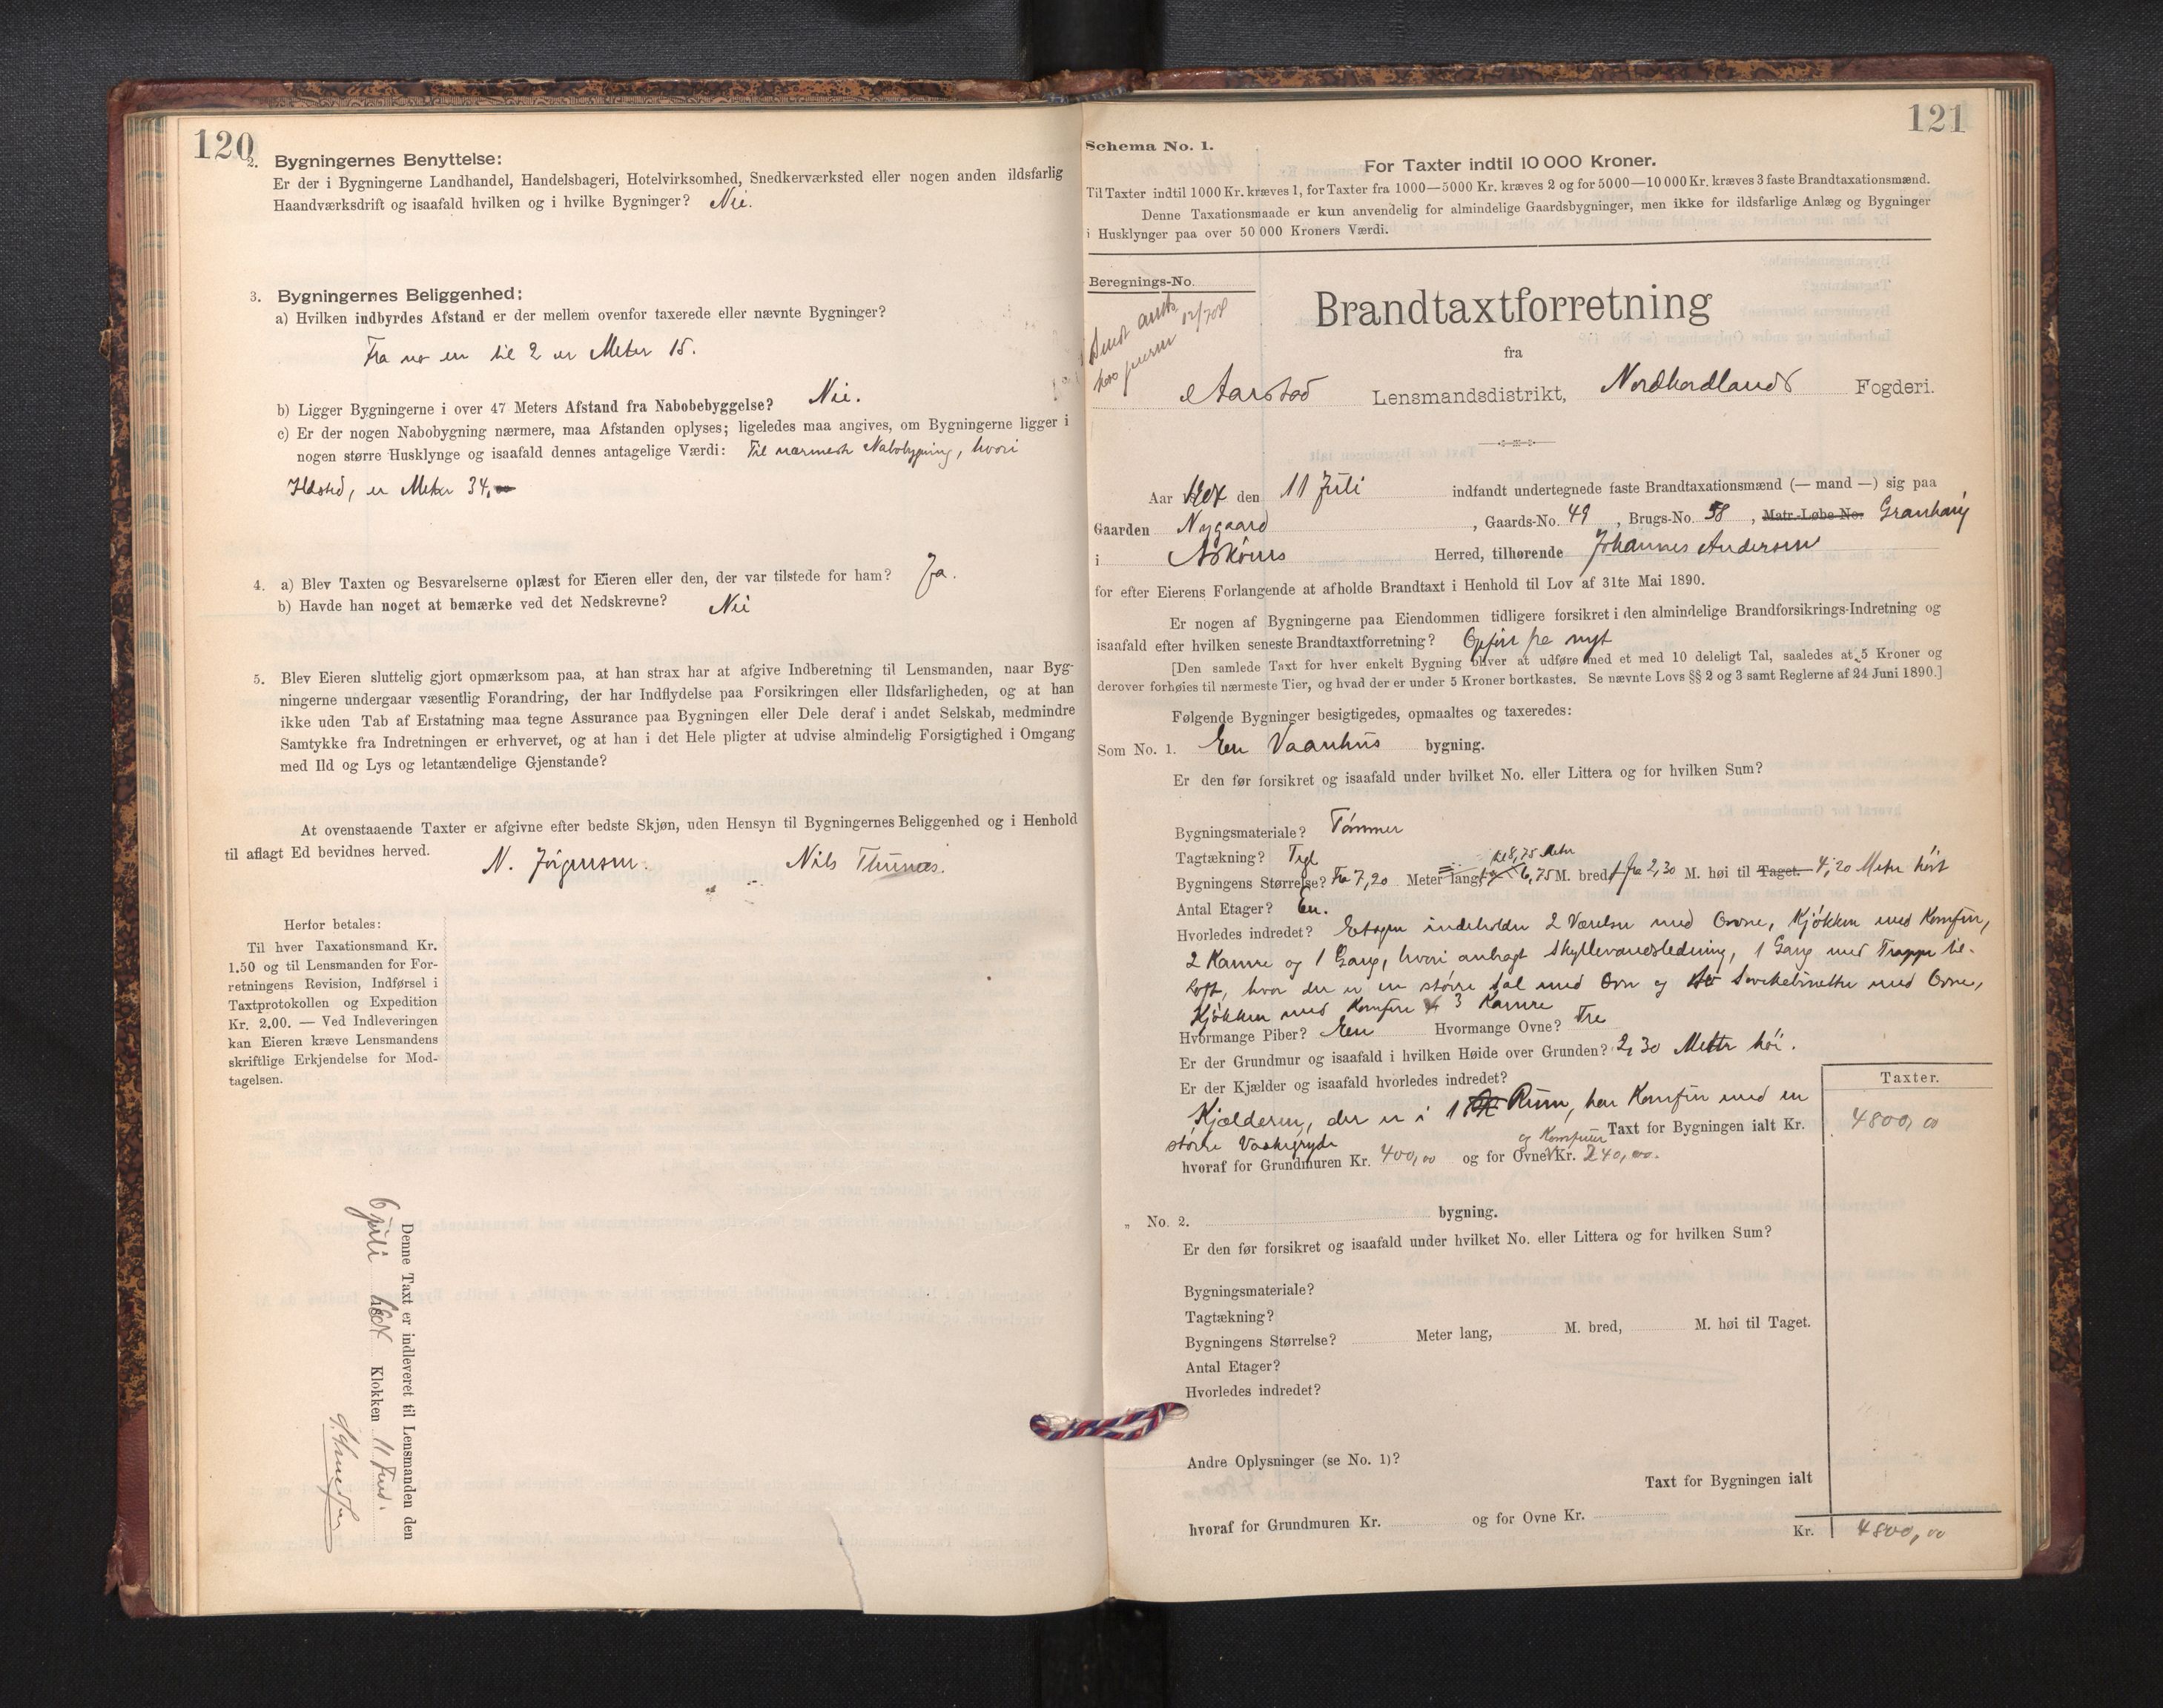 120
2. Bygningernes Benyttelse:
Er der i Bygningerne Landhandel, Handelsbageri, Hotelvirksomhed, Snedkerværksted eller nogen anden ildsfarlig
Haandværksdrift og isaafald hvilken og i hvilke Bygninger? Nei.
3. Bygningernes Beliggenhed:
a) Hvilken indbyrdes Afstand er der mellem ovenfor taxerede eller nævnte Bygninger?
Fra no en til 2 er Meter 15.
b) Ligger Bygningerne i over 47 Meters Afstand fra Nabobebyggelse? Nei.
c) Er der nogen Nabobygning nærmere, maa Afstanden oplyses; ligeledes maa angives, om Bygningerne ligger i
nogen større Husklynge og isaafald dennes antagelige Værdi: Til nærmeste Nabobygning, hvori
Ildsted, er Meter 34,
4. a) Blev Taxten og Besvarelserne oplæst for Eieren eller den, der var tilstede for ham? Ja.
b) Havde han noget at bemærke ved det Nedskrevne? Nei
5. Blev Eieren sluttelig gjort opmærksom paa, at han strax har at afgive Indberetning til Lensmanden, naar Byg-
ningerne undergaar væsentlig Forandring, der har Indflydelse paa Forsikringen eller Ildsfarligheden, og at han
ikke uden Tab af Erstatning maa tegne Assurance paa Bygningen eller Dele deraf i andet Selskab, medmindre
Samtykke fra Indretningen er erhvervet, og at han i det Hele pligter at udvise almindelig Forsigtighed i Omgang
med Ild og Lys og letantændelige Gjenstande?
At ovenstaaende Taxter er afgivne efter bedste Skjøn, uden Hensyn til Bygningernes Beliggenhed og i Henhold
til aflagt Ed bevidnes herved.
N. Jørgensen. Nils
Herfor betales:
Til hver Taxationsmand Kr.
1.50 og til Lensmanden for For-
retningens Revision, Indførsel i
Taxtprotokollen og Expedition
Kr. 2.00. — Ved Indleveringen
kan Eieren kræve Lensmandens
skriftlige Erkjendelse for Mod-
tagelsen.
Denne Taxt er indleveret til Lensmanden den
6 juli Klokken 11
121
Schema No. 1.
For Taxter indtil 10 000 Kroner.
Til Taxter indtil 1000 Kr. kræves 1, for Taxter fra 1000—5000 Kr. kræves 2 og for 5000—10 000 Kr. kræves 3 faste Brandtaxationsmænd.
Denne Taxationsmaade er kun anvendelig for almindelige Gaardsbygninger, men ikke for ildsfarlige Anlæg og Bygninger
i Husklynger paa over 50 000 Kroners Værdi.
Beregnings-No.
Brandtaxtforretning
fra
Aarstad Lensmandsdistrikt, Nordhordlands Fogderi.
Aar den 11 Juli indfandt undertegnede faste Brandtaxationsmænd (— mand —) sig paa
Gaarden Nygaard, Gaards-No. 49, Brugs-No. 58, Matr.-Løbe-No. Granhaug
i Askøens Herred, tilhørende Johannes Andersen
for efter Eierens Forlangende at afholde Brandtaxt i Henhold til Lov af 31te Mai 1890.
Er nogen af Bygningerne paa Eiendommen tidligere forsikret i den almindelige Brandforsikrings-Indretning og
isaafald efter hvilken seneste Brandtaxtforretning? Opført fra nyt
[Den samlede Taxt for hver enkelt Bygning bliver at udføre med et med 10 deleligt Tal, saaledes at 5 Kroner og
derover forhøies til nærmeste Tier, og hvad der er under 5 Kroner bortkastes. Se nævnte Lovs §§ 2 og 3 samt Reglerne af 24 Juni 1890.]
Følgende Bygninger besigtigedes, opmaaltes og taxeredes:
Som No. 1. En Vaanhus bygning.
Er den før forsikret og isaafald under hvilket No. eller Littera og for hvilken Sum?
Bygningsmateriale? Tømmer
Tagtækning? Tegl
til 8,75 Meter
Bygningens Størrelse? Fra 7,20 Meter lang, 6,75 M. bred, fra 2,30 M. høi til Taget. 4,20 Meter høit
Antal Etager? En.
Hvorledes indredet? Etagen indeholder 2 Værelser med Ovne, Kjøkken med Komfur,
2 Kamre og 1 Gang, hvori anbragt Skyllevandsledning, 1 Gang med Trappe til
Loft, hvor der er en større Sal med Ovn og med Ovne,
Kjøkken med Komfur & 3 Kamre
Hvormange Piber? En Hvormange Ovne? Tre
Er der Grundmur og isaafald i hvilken Høide over Grunden? 2,30 Meter høi.
Er der Kjælder og isaafald hvorledes indredet?
Kjælderen, der er i 1 Rum, har Komfur med en
større Vaskegryde
Taxter.
Taxt for Bygningen ialt Kr. 4800,00
og Komfurer
hvoraf for Grundmuren Kr. 400,00 og for Ovne Kr. 240,00.
„ No. 2. bygning.
Er den før forsikret og isaafald under hvilket No. eller Littera og for hvilken Sum?
Bygningsmateriale?
Tagtækning?
Bygningens Størrelse? Meter lang, M. bred, M. høi til Taget.
Antal Etager?
Hvorledes indredet?
Andre Oplysninger (se No. 1)?
Taxt for Bygningen ialt
hvoraf for Grundmuren Kr. og for Ovne Kr.
Kr. 4800,00